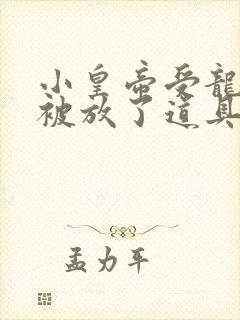 小皇帝受龍
被放了道具
孟力平